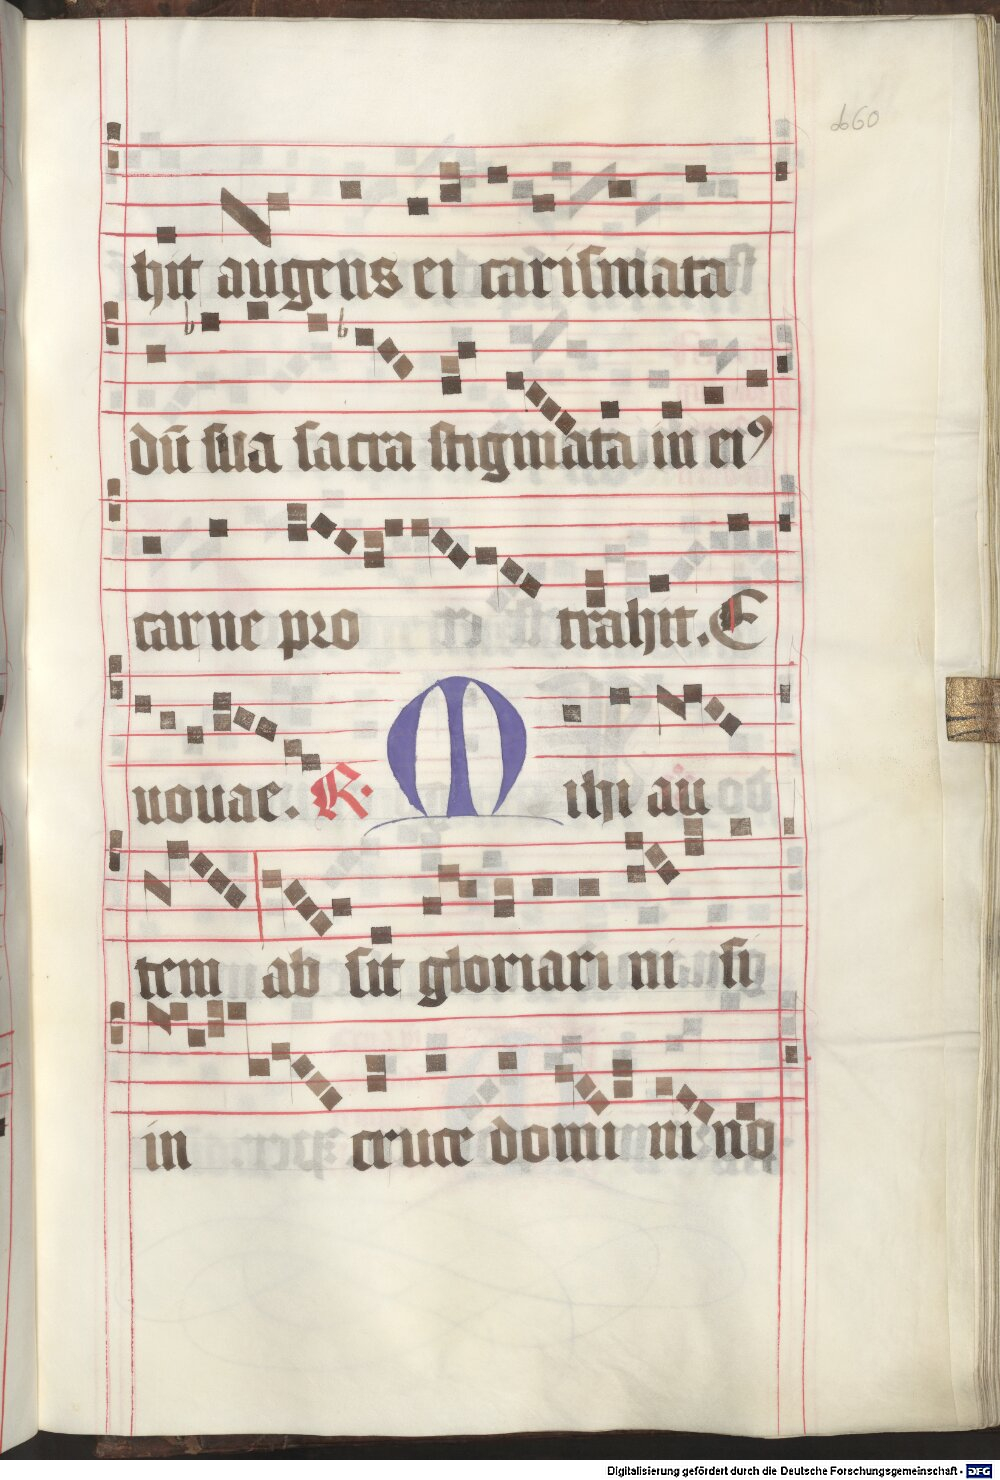 660
hit augens ei carismata
dū sua sacra stigmata in ei⁹
carne pro trahit. E
uouae. R. M ihi au
tem ab sit gloriari ni si
in cruce domi ni no
Digitalisierung gefördert durch die Deutsche Forschungsgemeinschaft - DFG